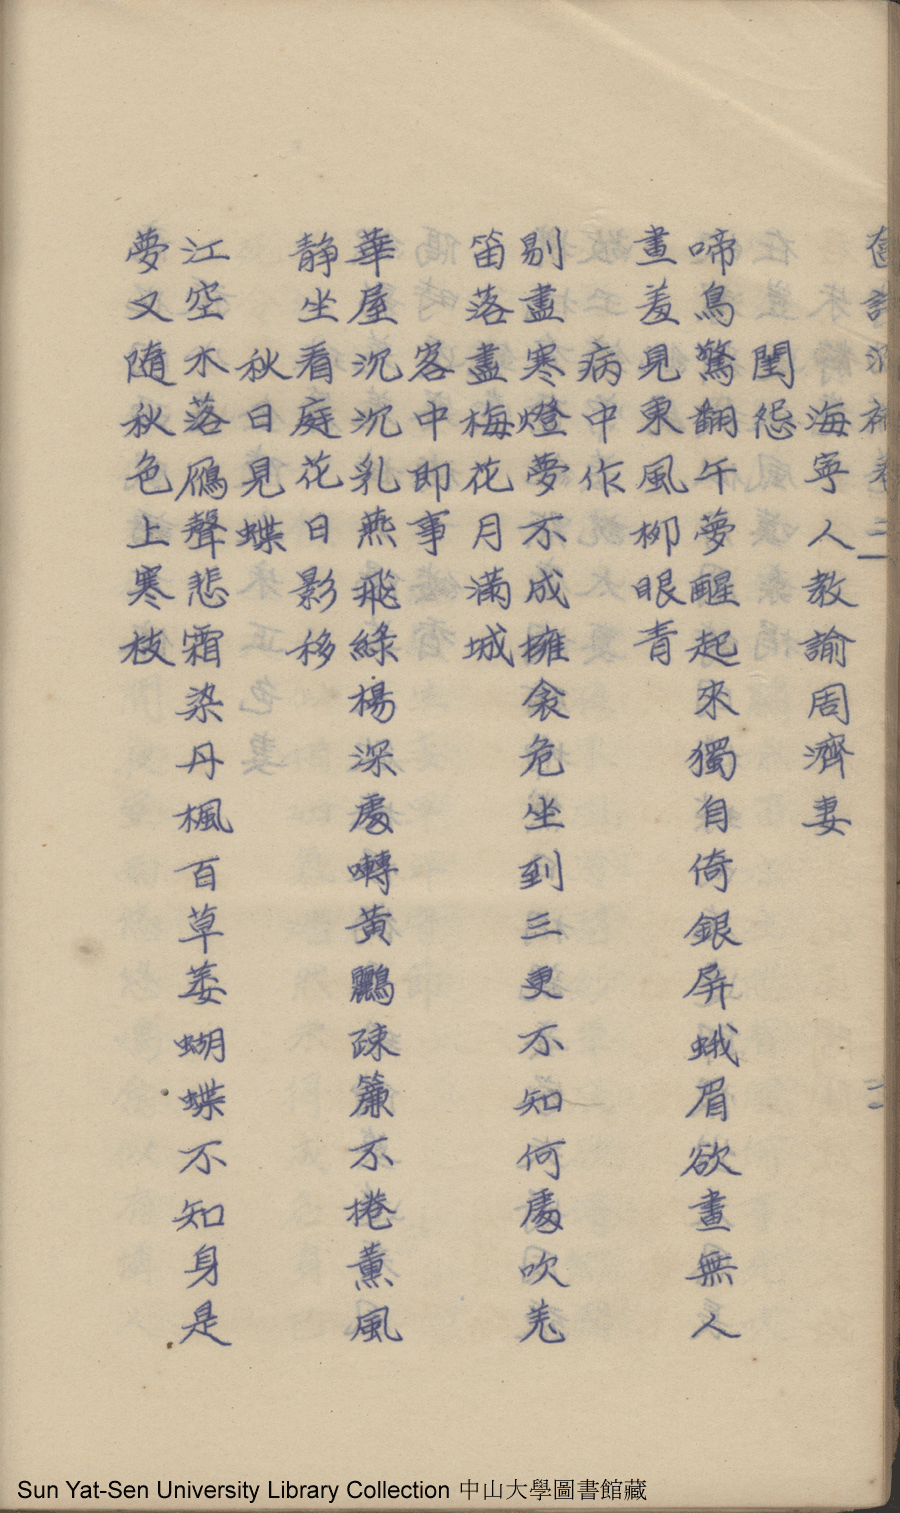 海寧人教諭周濟妻
閨怨
啼鳥驚翻午夢醒起來獨自倚銀屏蛾眉欲畫無人
畫羞見東風柳眼青
病中作
剔盡寒燈夢不成擁衾危坐到三更不知何處吹羌
笛落盡梅花月滿城
客中即事
華屋沉沉乳燕飛綠楊深處囀黃鸝疎簾不捲薰風
静坐看庭花日影移
秋日見蝶
江空木落鴈聲悲霜染丹楓百草萎蝴蝶不知身是
夢又随秋色上寒枝
Sun Yat-Sen University Library Collection 中山大學圖書館藏